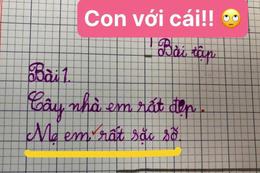 Con với cái!! 🙄
Bài tập
Bài 1.
Cây nhà em rất đẹp.
Mẹ em rất sặc sỡ.